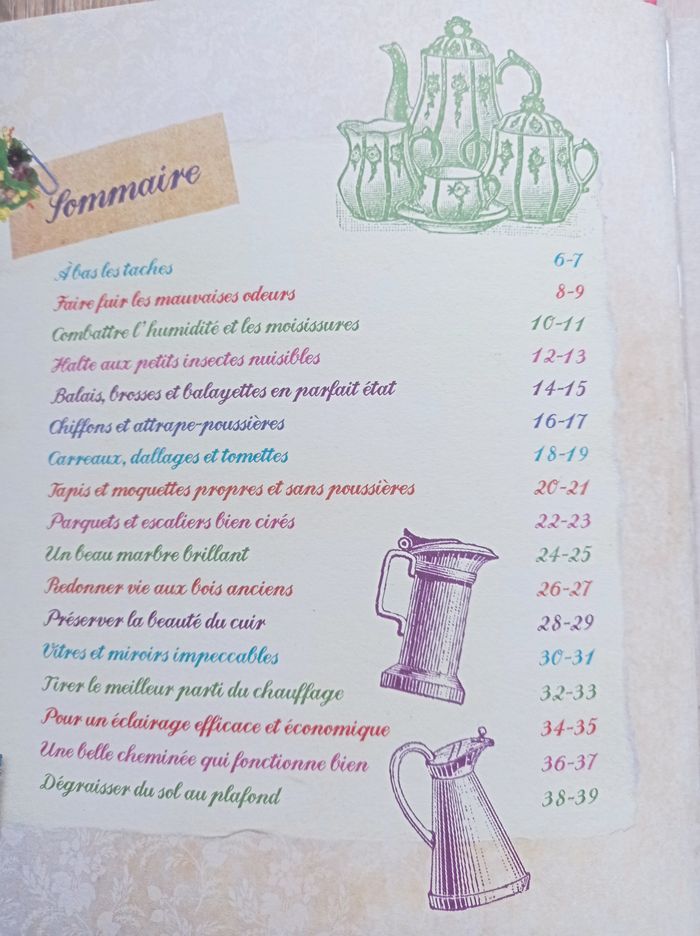 Sommaire
À bas les taches 6-7
Faire fuir les mauvaises odeurs 8-9
Combattre l'humidité et les moisissures 10-11
Halte aux petits insectes nuisibles 12-13
Balais, brosses et balayettes en parfait état 14-15
Chiffons et attrape-poussières 16-17
Carreaux, dallages et tomettes 18-19
Tapis et moquettes propres et sans poussières 20-21
Parquets et escaliers bien cirés 22-23
Un beau marbre brillant 24-25
Redonner vie aux bois anciens 26-27
Préserver la beauté du cuir 28-29
Vitres et miroirs impeccables 30-31
Tirer le meilleur parti du chauffage 32-33
Pour un éclairage efficace et économique 34-35
Une belle cheminée qui fonctionne bien 36-37
Dégraisser du sol au plafond 38-39